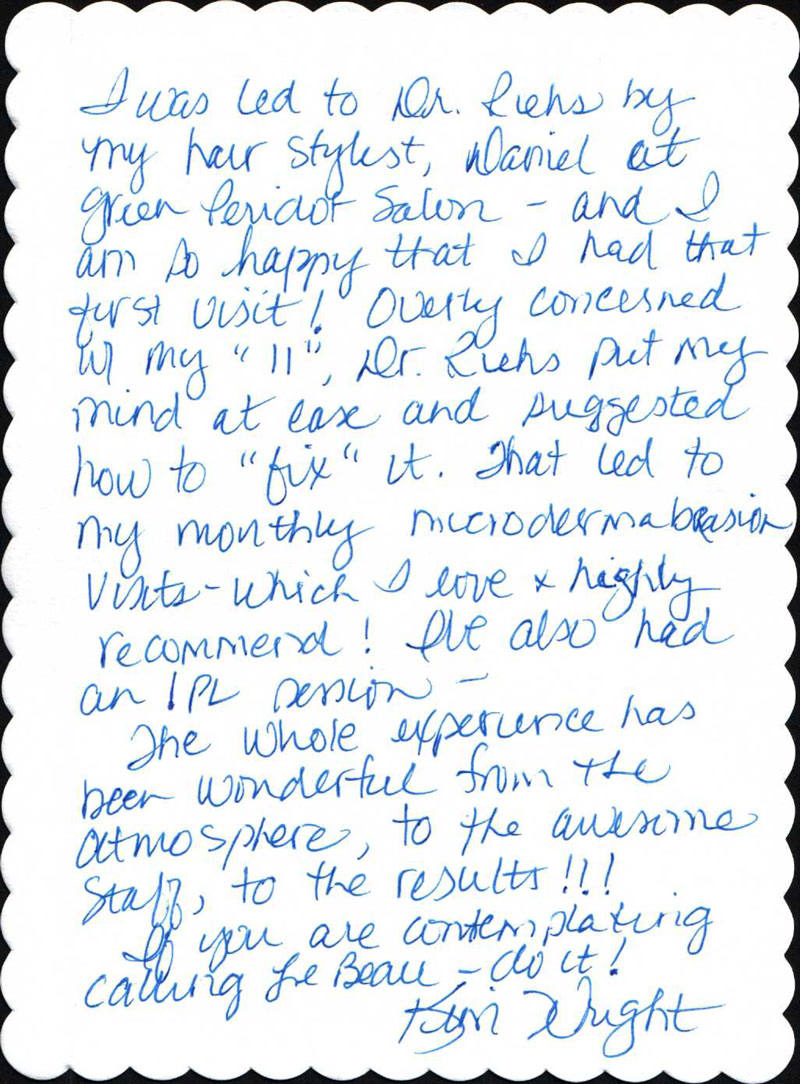 I was led to Dr. Riehs by
my hair stylist, Daniel at
Green Peridot Salon - and I
am so happy that I had that
first visit! Overly concerned
w/ my "11", Dr. Riehs put my
mind at ease and suggested
how to "fix" it. That led to
my monthly microdermabrasion
visits - which I love & highly
recommend! I've also had
an IPL session -
The whole experience has
been wonderful from the
atmosphere, to the awesome
staff, to the results!!!
If you are contemplating
calling Le Beau - do it!
Kim Wright